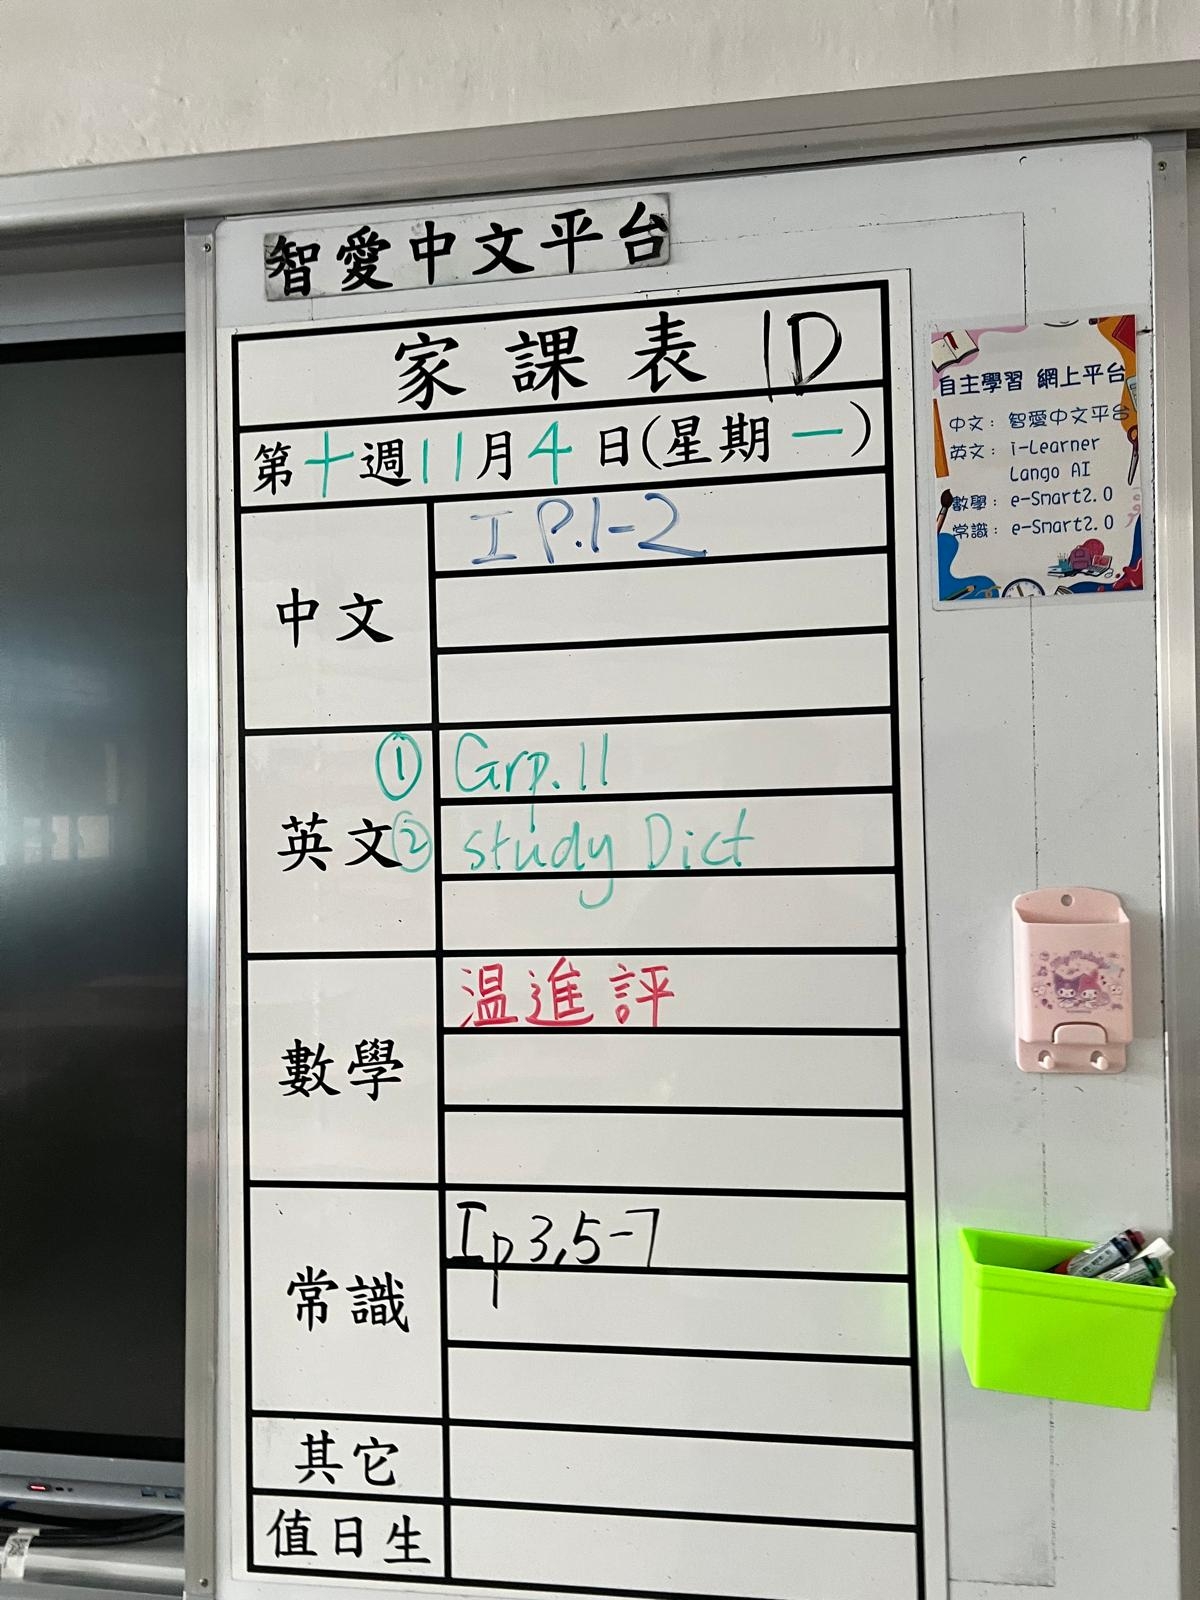 智愛中文平台
家課表 1D
第十週11月4日(星期一)
中文
I P.1-2
英文
① Grp.11
② study Dict
數學
温進評
常識
I p 3,5-7
其它
值日生
自主學習 網上平台
中文：智愛中文平台
英文：i-Learner
Lango AI
數學：e-Smart2.0
常識：e-Smart2.0